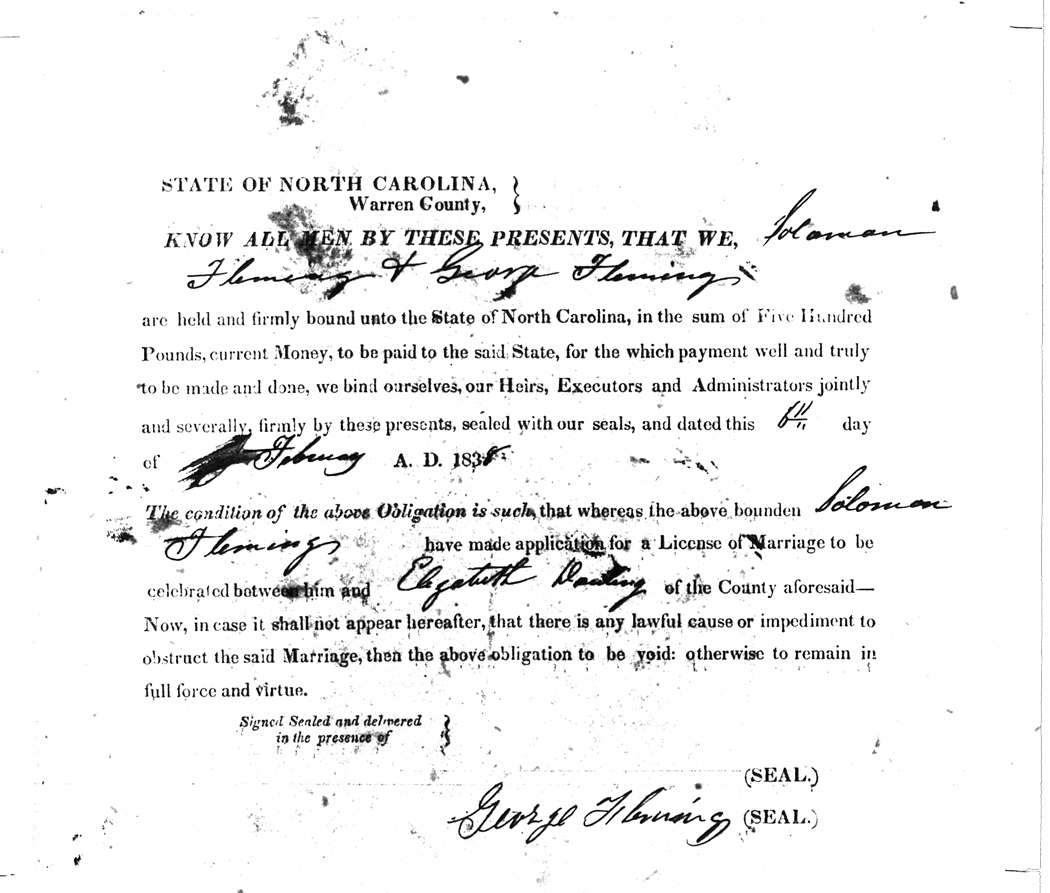 STATE OF NORTH CAROLINA,
Warren County,
KNOW ALL MEN BY THESE PRESENTS, THAT WE, Soloman
Fleming & George Fleming
are held and firmly bound unto the State of North Carolina, in the sum of Five Hundred
Pounds, current Money, to be paid to the said State, for the which payment well and truly
to be made and done, we bind ourselves, our Heirs, Executors and Administrators jointly
and severally, firmly by these presents, sealed with our seals, and dated this day
of February A. D. 183
The condition of the above Obligation is such, that whereas the above bounden Soloman
Fleming have made application for a License of Marriage to be
celebrated between him and Elizabeth of the County aforesaid—
Now, in case it shall not appear hereafter, that there is any lawful cause or impediment to
obstruct the said Marriage, then the above obligation to be void: otherwise to remain in
full force and virtue.
Signed Sealed and delivered
in the presence of
(SEAL.)
George Fleming (SEAL.)